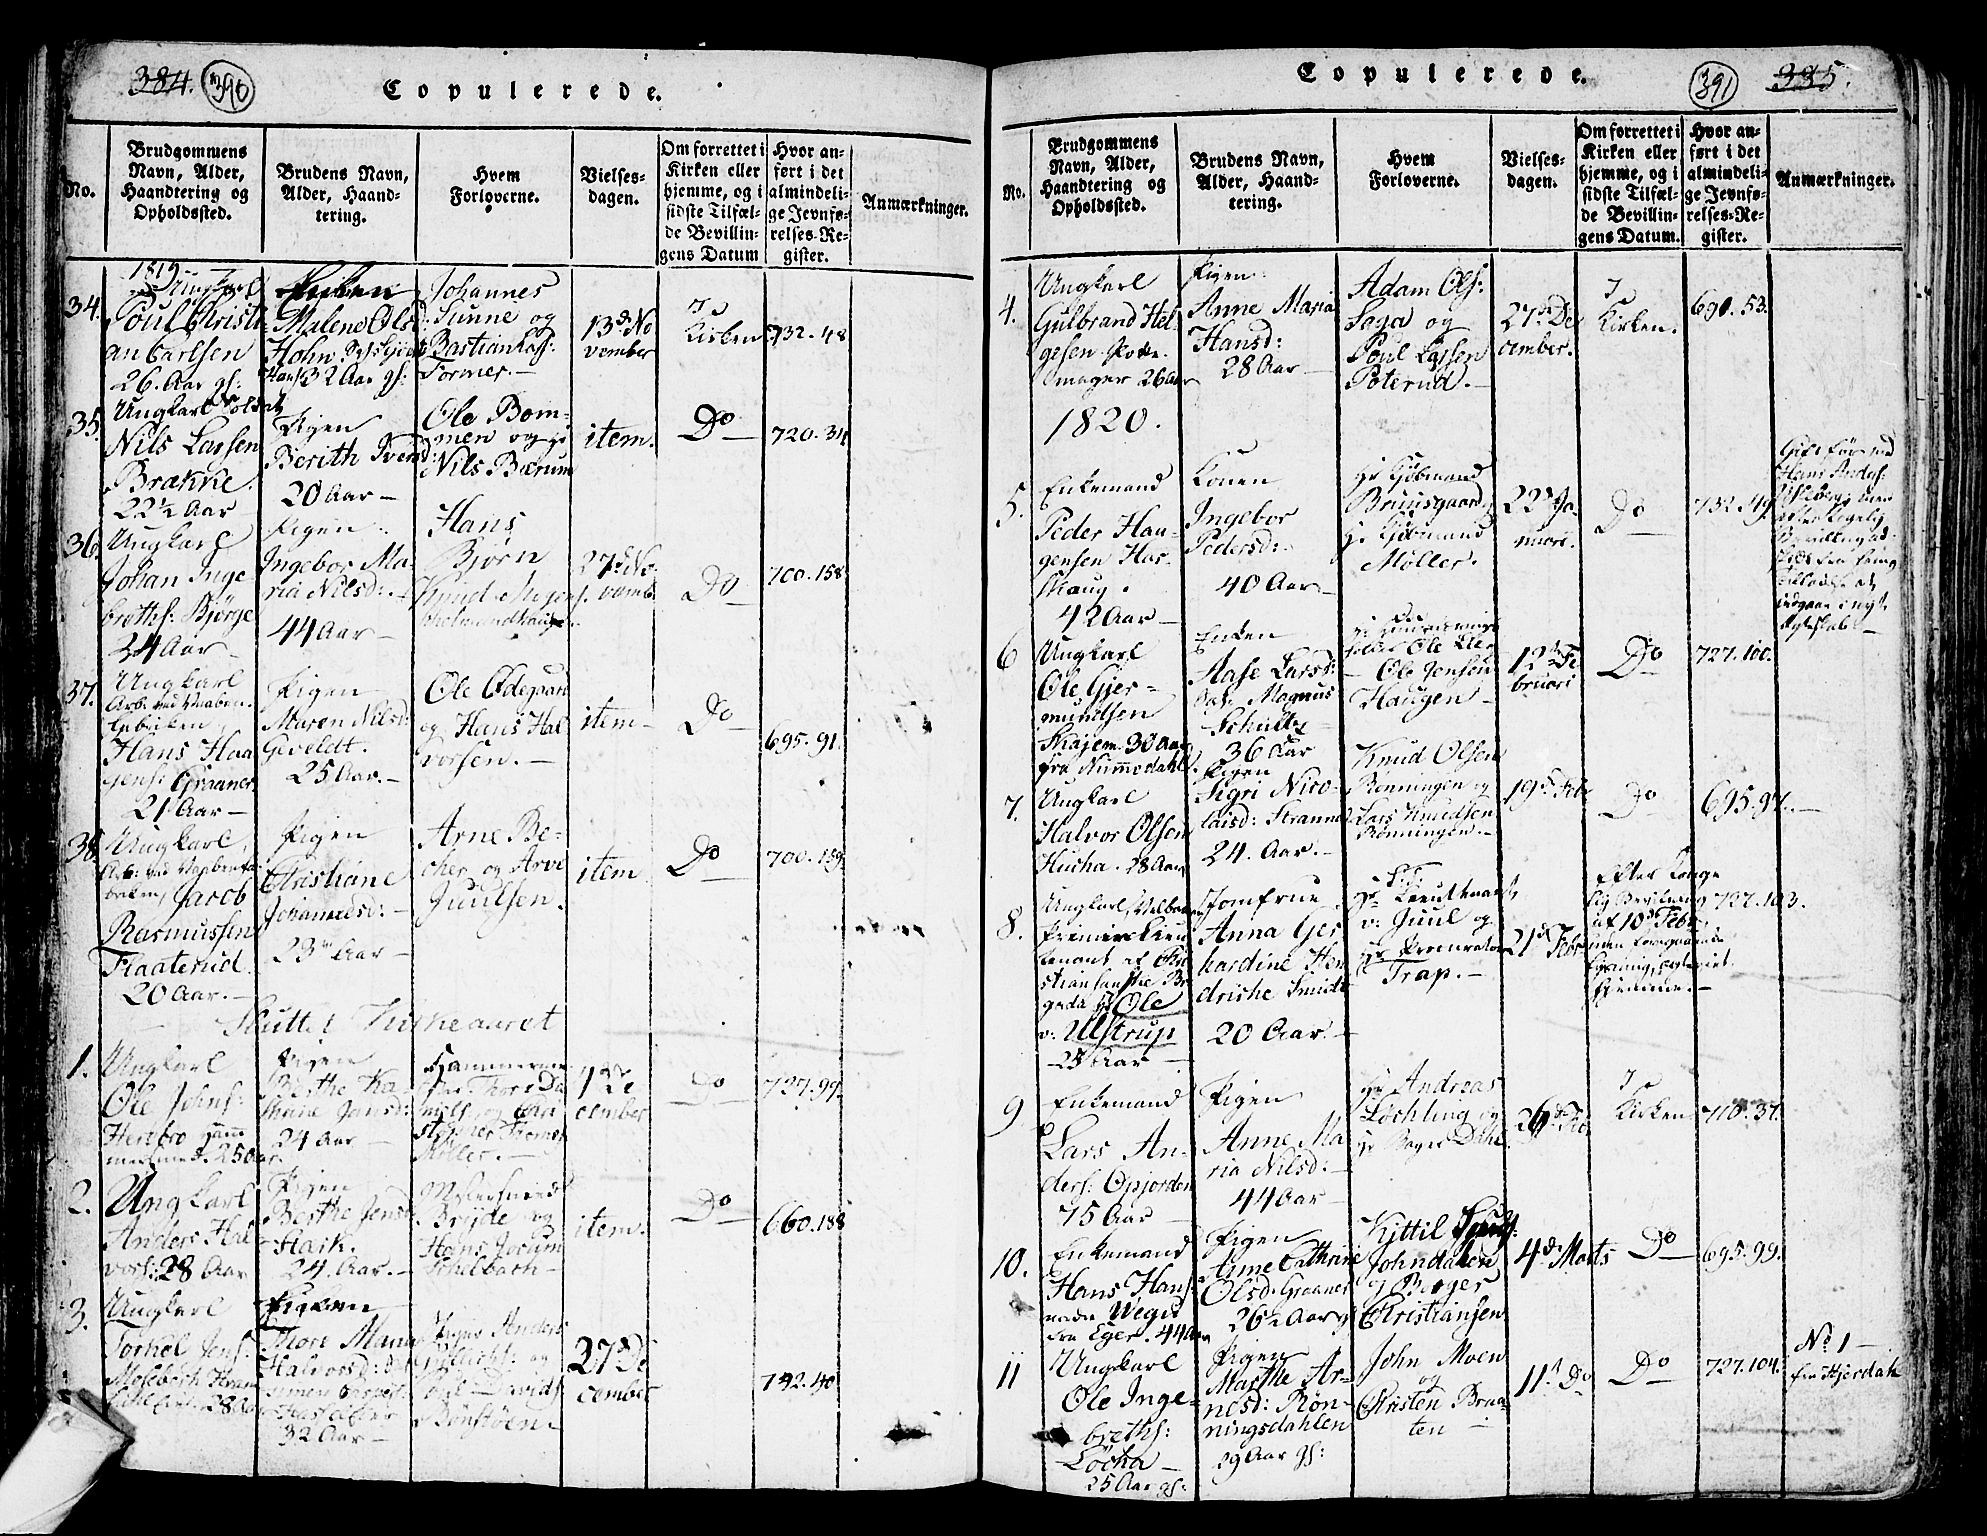 384. 390
Copulerede.
No.
Brudgommens
Navn, Alder,
Haandtering og
Opholdssted.
Brudens Navn,
Alder, Haand-
tering.
Hvem
Forloverne.
Vielses-
dagen.
Om forrettet i
Kirken eller
hjemme, og i
sidste Tilfæl-
de Bevillin-
gens Datum
Hvor an-
ført i det
almindeli-
ge Jevnfø-
relses-Re-
gister.
Anmærkninger.
1819
34.
Ungkarl
Poul Christi
an Carlsen
26. Aar gs:
Pigen
Malene Olsd:
Hohn
32 Aar gs:
Johannes
Sunne og
Bastian Lass:
Tormer.
13d No
vember
I
Kirken
732. 48
35.
Ungkarl Soldat
Nils Larsen
Brække.
22½ Aar
Pigen
Berith Iversd:
20 Aar
Ole Bom-
men og
Nils Bærum
item.
Do
720. 34
36.
Ungkarl
Johan Inge
breths: Bjørge
24 Aar
Pigen
Ingebor Ma-
ria Nilsd:
44 Aar
Hans
Bjørn
Knud
27d No
vemb.
Do
700. 158
37.
Ungkarl
Arb. ved Vaaben-
fabriken
Hans Haa
gens: Graaner
21 Aar
Pigen
Maren Nilsd:
Geveldt.
25 Aar.
Ole Ødegaar
og Hans Hal
vorsen.
item
Do
695. 91.
38
Ungkarl
Arb: ved Vaabenfa-
briken, Jacob
Rasmussen
Flaaterud.
20 Aar.
Pigen
Christiane
Johannesd:
23 Aar
Arne Be-
cher og Arve
Juulsen.
item
Do
700. 159
Sluttet Kirkeaaret
1.
Ungkarl
Ole Johns:
Herebro Ham
mersmed. 25 Aar.
Pigen
Birthe Ka
thrine Jonsd:
24 Aar
Hammersme
Thore Da
niels og
Møller.
1 De
cember
Do
727. 99.
2.
Ungkarl
Anders Hal
vors: 28 Aar
Pigen
Berthe Jensd
Hask.
24. Aar.
Mestersmed
Brijde og
Hans Jocum
Schelbach
item.
Do
660. 188
3.
Ungkarl
Torkel Jens:
28 Aar
Pigen
Thore Maria
Halvorsd:
32 Aar
Anders
og
Davids
Bønstøen
27d De
cember
742. 40
Copulerede.
391 335.
No.
Brudgommens
Navn, Alder,
Haandtering og
Opholdssted.
Brudens Navn,
Alder, Haand-
tering.
Hvem
Forloverne.
Vielses-
dagen.
Om forrettet i
Kirken eller
hjemme, og i
sidste Tilfæl-
de Bevillin-
gens Datum.
Hvor an-
ført i det
almindeli-
ge Jevnfø-
relses-Re-
gister.
Anmærkninger.
4.
Ungkarl
Gulbrand Hel
gesen Skoe-
mager 26 Aar
Pigen
Anne Maria
Hansd:
28 Aar
Adam Ols:
Saga og
Poul Larsen
Poterud.
27d De
cember.
I
Kirken.
690. 53.
1820.
5.
Enkemand
Peder Haa-
gensen Har-
skaug.
42 Aar
Konen
Ingebor
Pedersd:
40 Aar
Hr Kjøbmand
Bruusgaard,
Hr Kjøbmand
Møller.
22d Ja-
nuari.
Do
732. 49.
Gift før med
Hans Anders:
men
efter Kogelig
Bevilling
indgaae i nyt
Ægteskab.
6
Ungkarl
Ole Gjer-
mundsen
Skajem 30 Aar
fra Nummedahl.
Enken
Aase Larsd:
Magnus
Schultz
36 Aar
Ole
Ole Jensen
Haugen
12d Fe
bruari
Do
727. 100.
7.
Ungkarl
Halvor Olsen
Hucha. 28 Aar
Pigen
Sigri Nico-
laisd: Stranne
24. Aar.
Knud Olsen
Rønningen og
Lars Knudsen
Rønningen.
19d Feb
Do
695. 97.
8.
Ungkarl, Velbaarne
Premier Lieu
tenant af Chri
stiansandske Bri
gade Hr Ole
v. Ulstrup
25 Aar
Jomfrue
Anna Ger
hardine Hen
driche Smidt
20 Aar.
Hr Lieutenant
v. Juul og
Hr Procurator
Trap.
21d Febr
Efter Konge
lig Bevilning
af 10d Febr.
hjemme.
727. 103.
9
Enkemand
Lars An-
ders: Opjorden
75 Aar
Pigen
Anne Ma
ria Nilsd:
44 Aar
Hr Andreas
Løchling og
Hr Bager Dahl
26d Feb.
I
Kirken
710. 37.
10.
Enkemand
Hans Hans:
Wegu
fra Eger. 44 Aar
Pigen
Anne Cathrine
Olsd: Graaner
26½ Aar
Kittil
Johndalen
og Berger
Christiansen
4d Marts
Do
695. 99.
11
Ungkarl
Ole Inge-
breths:
Løcka
25 Aar gs:
Pigen
Marthe Ar-
nesd: Røn-
ningsdahlen
29 Aar gs:
John Moen
og
Christen Braa-
ten
11d Do
Do
727. 104.
No 1
fra Hjerdahl